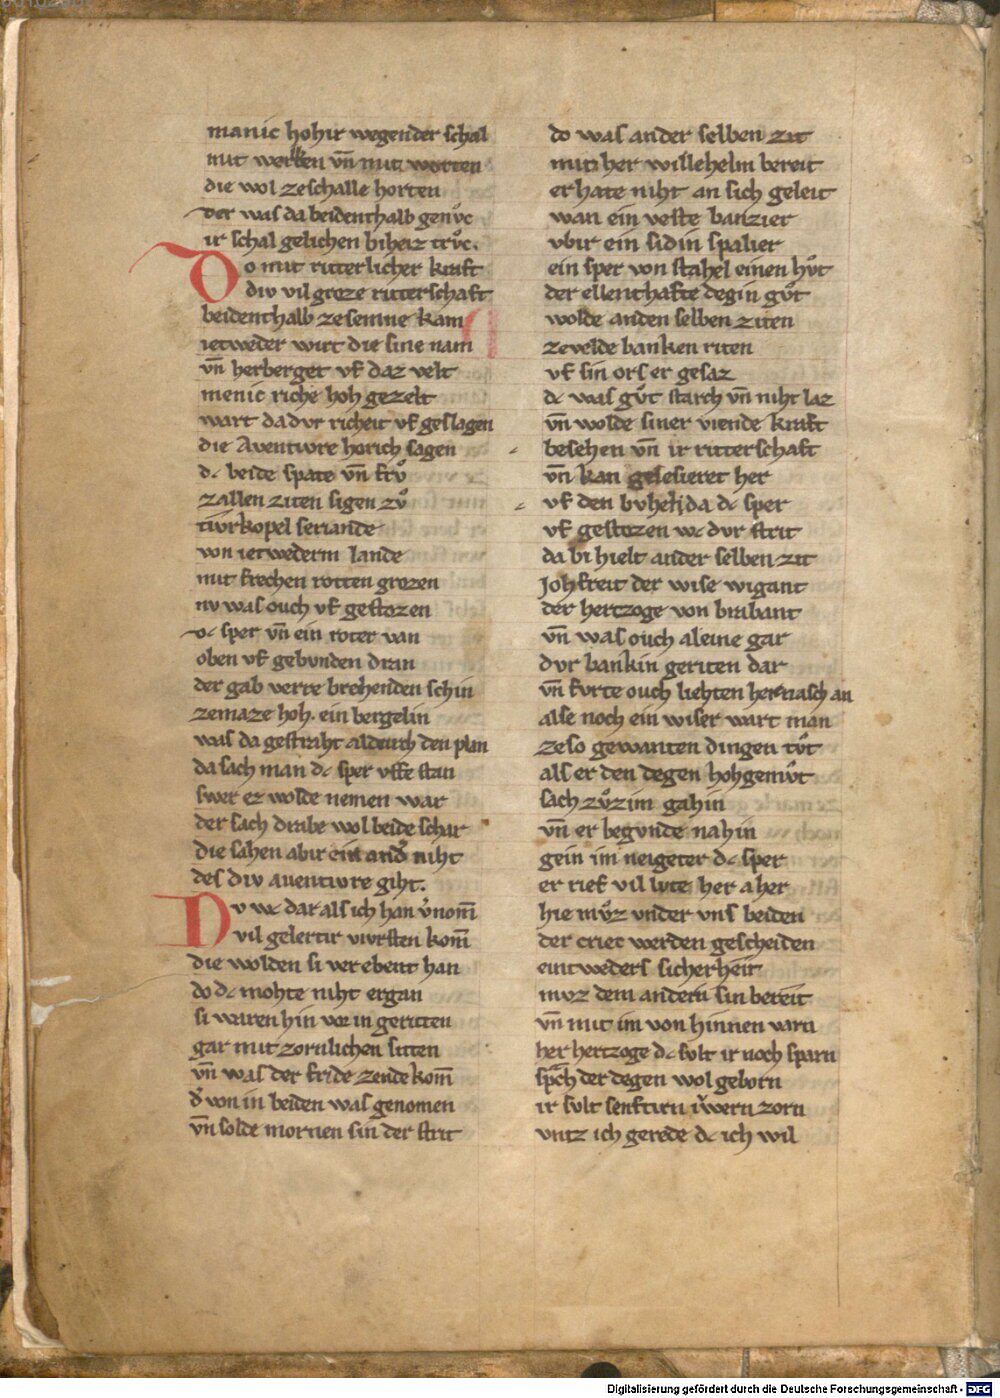 manic hohir wegender schal
mit werken vn̄ mit worten
die wol zeschalle horten
der was da beidenthalb genv̊c
ir schal gelichen biheiz trv̊c.
Do mit ritterlicher kraft
div vil groze ritterschaft
beidenthalb zesemine kam
ietweder wirt die sine nam
vn̄ herberget vf daz velt
menic riche hoh gezelt
wart da dvr richeit vf geslagen
die Aventivre horich sagen
dc beide spate vn̄ frv̊
zallen ziten sigen zv̊
tiurkopel seriande
von ietwederm lande
mit frechen rotten grozen
nv was ouch vf gestozen
dc sper vn̄ ein roter van
oben vf gebvnden dran
der gab verre brehenden schin
zemaze hoh. ein bergelin
was da gestraht aldurch den plan
da sach man dc sper vffe stan
swer ez wolde nemen war
der sach drabe wol beide schar
die sahen abir ein and͛ niht
des div auentivre giht.
Nv wc dar als ich han v͛nom̄
vil gelertir vivrsten kom̄
die wolden si ver ebent han
do dc mohte niht ergan
si waren hin vor in geritten
gar mit zornlichen sitten
vn̄ was der fride zende kom̄
d͛ von in beiden was genomen
vn̄ solde mornen sin der strit
do was ander selben zit
mit her willehelm bereit
er hate niht an sich geleit
wan ein veste banzier
vbir ein sidin spalier
ein sper von stahel einen hv̊t
der ellenthafte degin gv̊t
wolde anden selben ziten
zevelde banken riten
vf sin ors er gesaz
dc was gv̊t starch vn̄ niht laz
vn̄ wolde siner viende kraft
besehen vn̄ ir ritterschaft
vn̄ kan geleisieret her
vf den bvhel da dc sper
vf gestozen wc dvr strit
da bi hielt ander selben zit
Johfreit der wise wigant
der hertzoge von brabant
vn̄ was ouch aleine gar
dvr bankin geriten dar
vn̄ fvrte ouch liehten hernasch an
alse noch ein wiser wart man
zeso gewanten dingen tv̊t
als er den degen hohgemv̊t
sach zv̊zim gahin
vn̄ er begvnde nahin
gein im neigeter dc sper
er rief vil lvte her a her
hie mv̊z vnder vns beiden
der criec werden gescheiden
eintweders sicherheit
mvz dem andern sin bereit
vn̄ mit im von hinnen varn
her hertzoge dc svlt ir noch sparn
sp̄ch der degen wol geborn
ir svlt senftirn iv̍wern zorn
vntz ich gerede dc ich wil
Digitalisierung gefördert durch die Deutsche Forschungsgemeinschaft - DFG